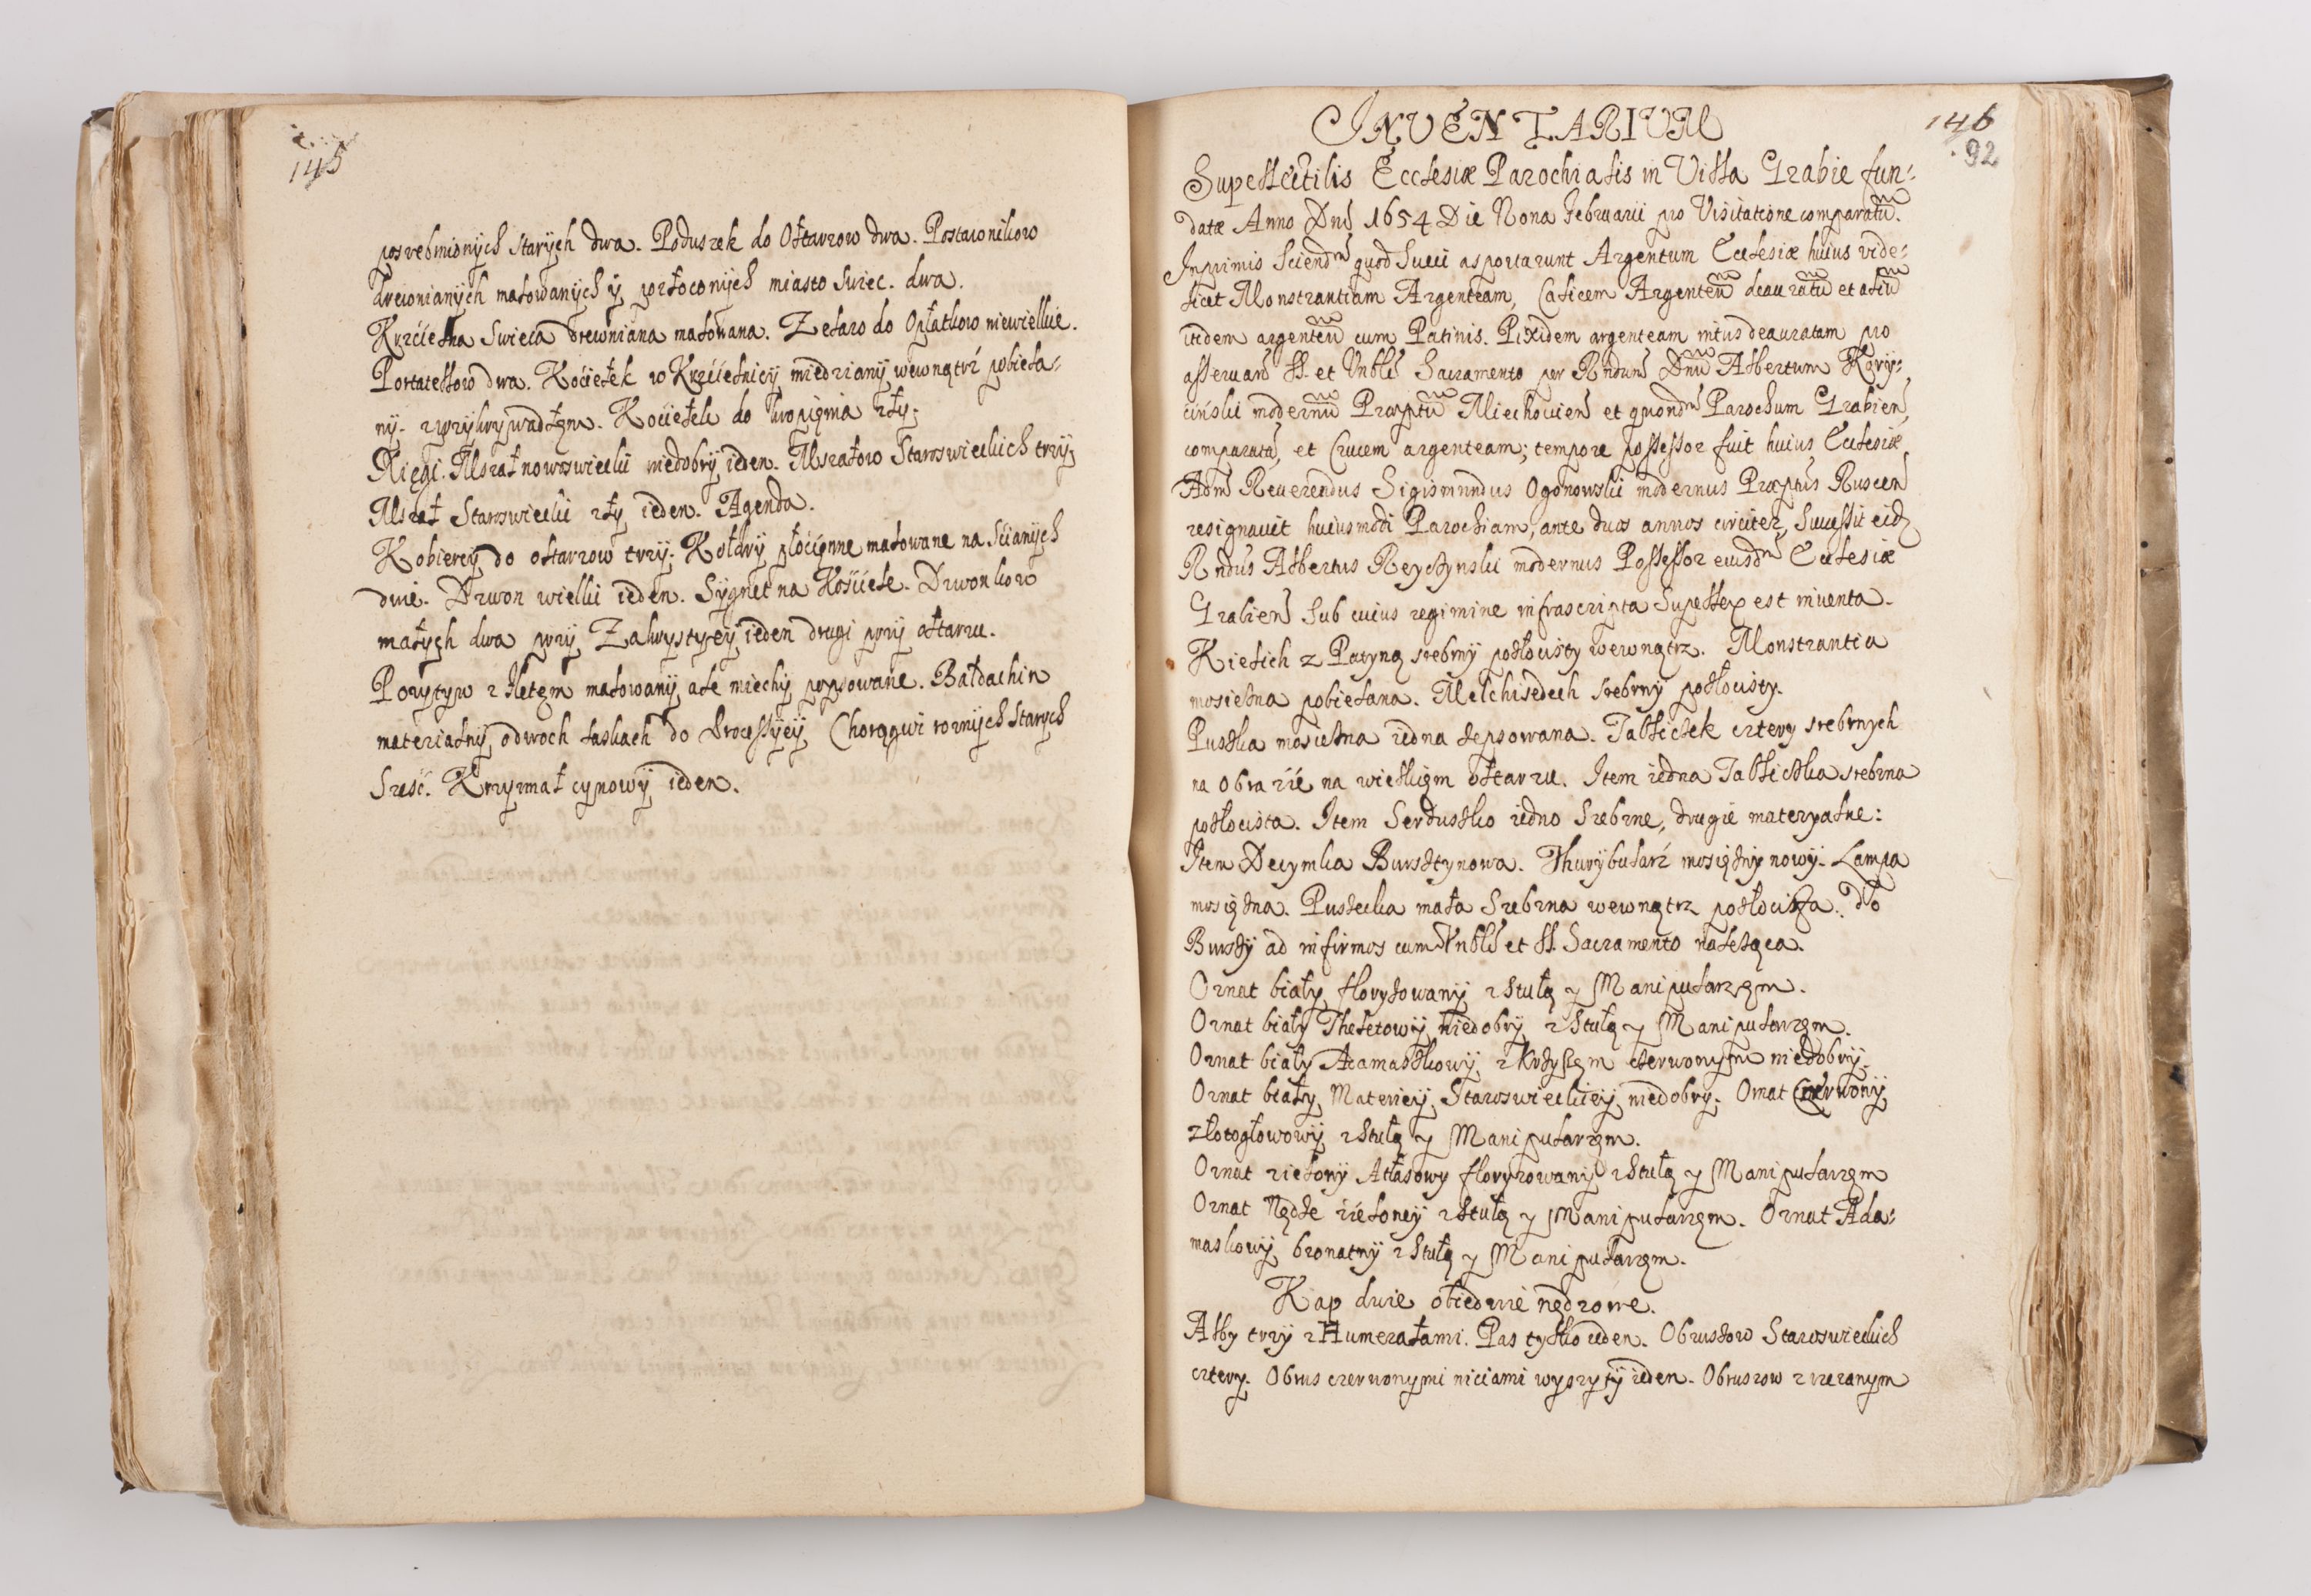 145
posrebrnionych starych dwa. Poduszek do Ołtarzow dwa. Postawnikow
drewnianych malowanych y pozłoconych miasto swiec. dwa.
Krzcielna Swieca drewniana malowana. Zelazo do Opłatkow niewielkie.
Portatellow dwa. Kociełek w Krzcielnicy miedziany wewnątrz pobiela-
ny z przykrywadłem. Kociełek do kropienia zły.
Xięgi. Mszał nowoswiecki niedobry ieden. Mszałow Staroswieckich trzy,
Mszał Staroswiecki zły ieden. Agenda.
Kobiercy do ołtarzow trzy. Kołdry płocienne malowane na Scianych
dwie. Dzwon wielki ieden. Sygnet na Kosciele. Dzwonkow
małych dwa przy Zakrystyey ieden drugi przy ołtarzu.
Pozytyw z Fletem malowany, ale miechy popsowane. Bałdachin
materialny, o dwoch laskach do Processyey, Chorągwi roznych starych
Szesc. Krzyzmał cynowy ieden.
146
92
INVENTARIUM
Supellectilis Ecclesiæ Parochialis in Villa Grabie fun-
datæ Anno Dnĩ 1654 Die Nona Februarii pro Visitatione comparatũ.
Inprimis Sciendm quod Sueci asportarunt Argentum Ecclesiæ huius vide-
licet Monstrantiam Argenteam, Calicem Argenteũ deauratũ et aliũ
itidem argenteũ cum Patinis. Pixidem argenteam intus deauratam pro
asseruand SS. et Vnbli Sacramento per Rndum Dnũ Albertum Kory-
cinski modernũ Præptũ Miechouien et quondm Parochum Grabien
comparatã, et Crucem argenteam; tempore possessor fuit huius Ecclesiæ
Adm Reuerendus Sigismundus Ogonowski modernus Præptus Ruscen
resignauit huiusmodi Parochiam, ante duos annos circiter, Successit eid
Rndus Albertus Reyczynski modernus Possessor eiusdm Ecclesiæ
Grabien Sub cuius regimine infrascripta Supellex est inuenta.
Kielich z Patyną srebrny pozłocisty wewnątrz. Monstrantia
mosiezna pobielana. Melchisedech srebrny pozłocisty.
Puszka mosiezna iedna zepsowana. Tabliczek cztery srebrnych
na obrazie na wielkiem ołtarzu. Item iedna Tabliczka srebrna
pozłocista. Item Serduszko iedno Srebrne, drugie materyalne:
Item Decymka Bursztynowa. Thurybularz mosiężny nowy. Lampa
mosiężna. Puszecka mała Srebrna wewnątrz pozłocista. do
Burszy ad infirmos cum Vnbli et SS. Sacramento naleząca.
Ornat biały floryzowany z Stułą y Manipularzem.
Ornat biały Theletowy niedobry z Stułą y Manipularzem.
Ornat biały Adamaszkowy z Krzyzem czerwonym niedobry.
Ornat biały Materiey Staroswieckiey niedobry. Ornat Czerwony
złotogłowowy z Stułą y Manipularzem.
Ornat zielony Atlasowy floryzowany z Stułą y Manipularzem
Ornat Nędze zieloney z Stułą y Manipularzem. Ornat Ada-
maskowy bronatny z Stułą y Manipularzem.
Kap dwie obiedwie nędzowe.
Alby trzy z Humerałami. Pas tylko ieden. Obrusow Staroswieckich
cztery. Obrus czerwonymi niciami wyszyty ieden. Obrusow z rzezanym